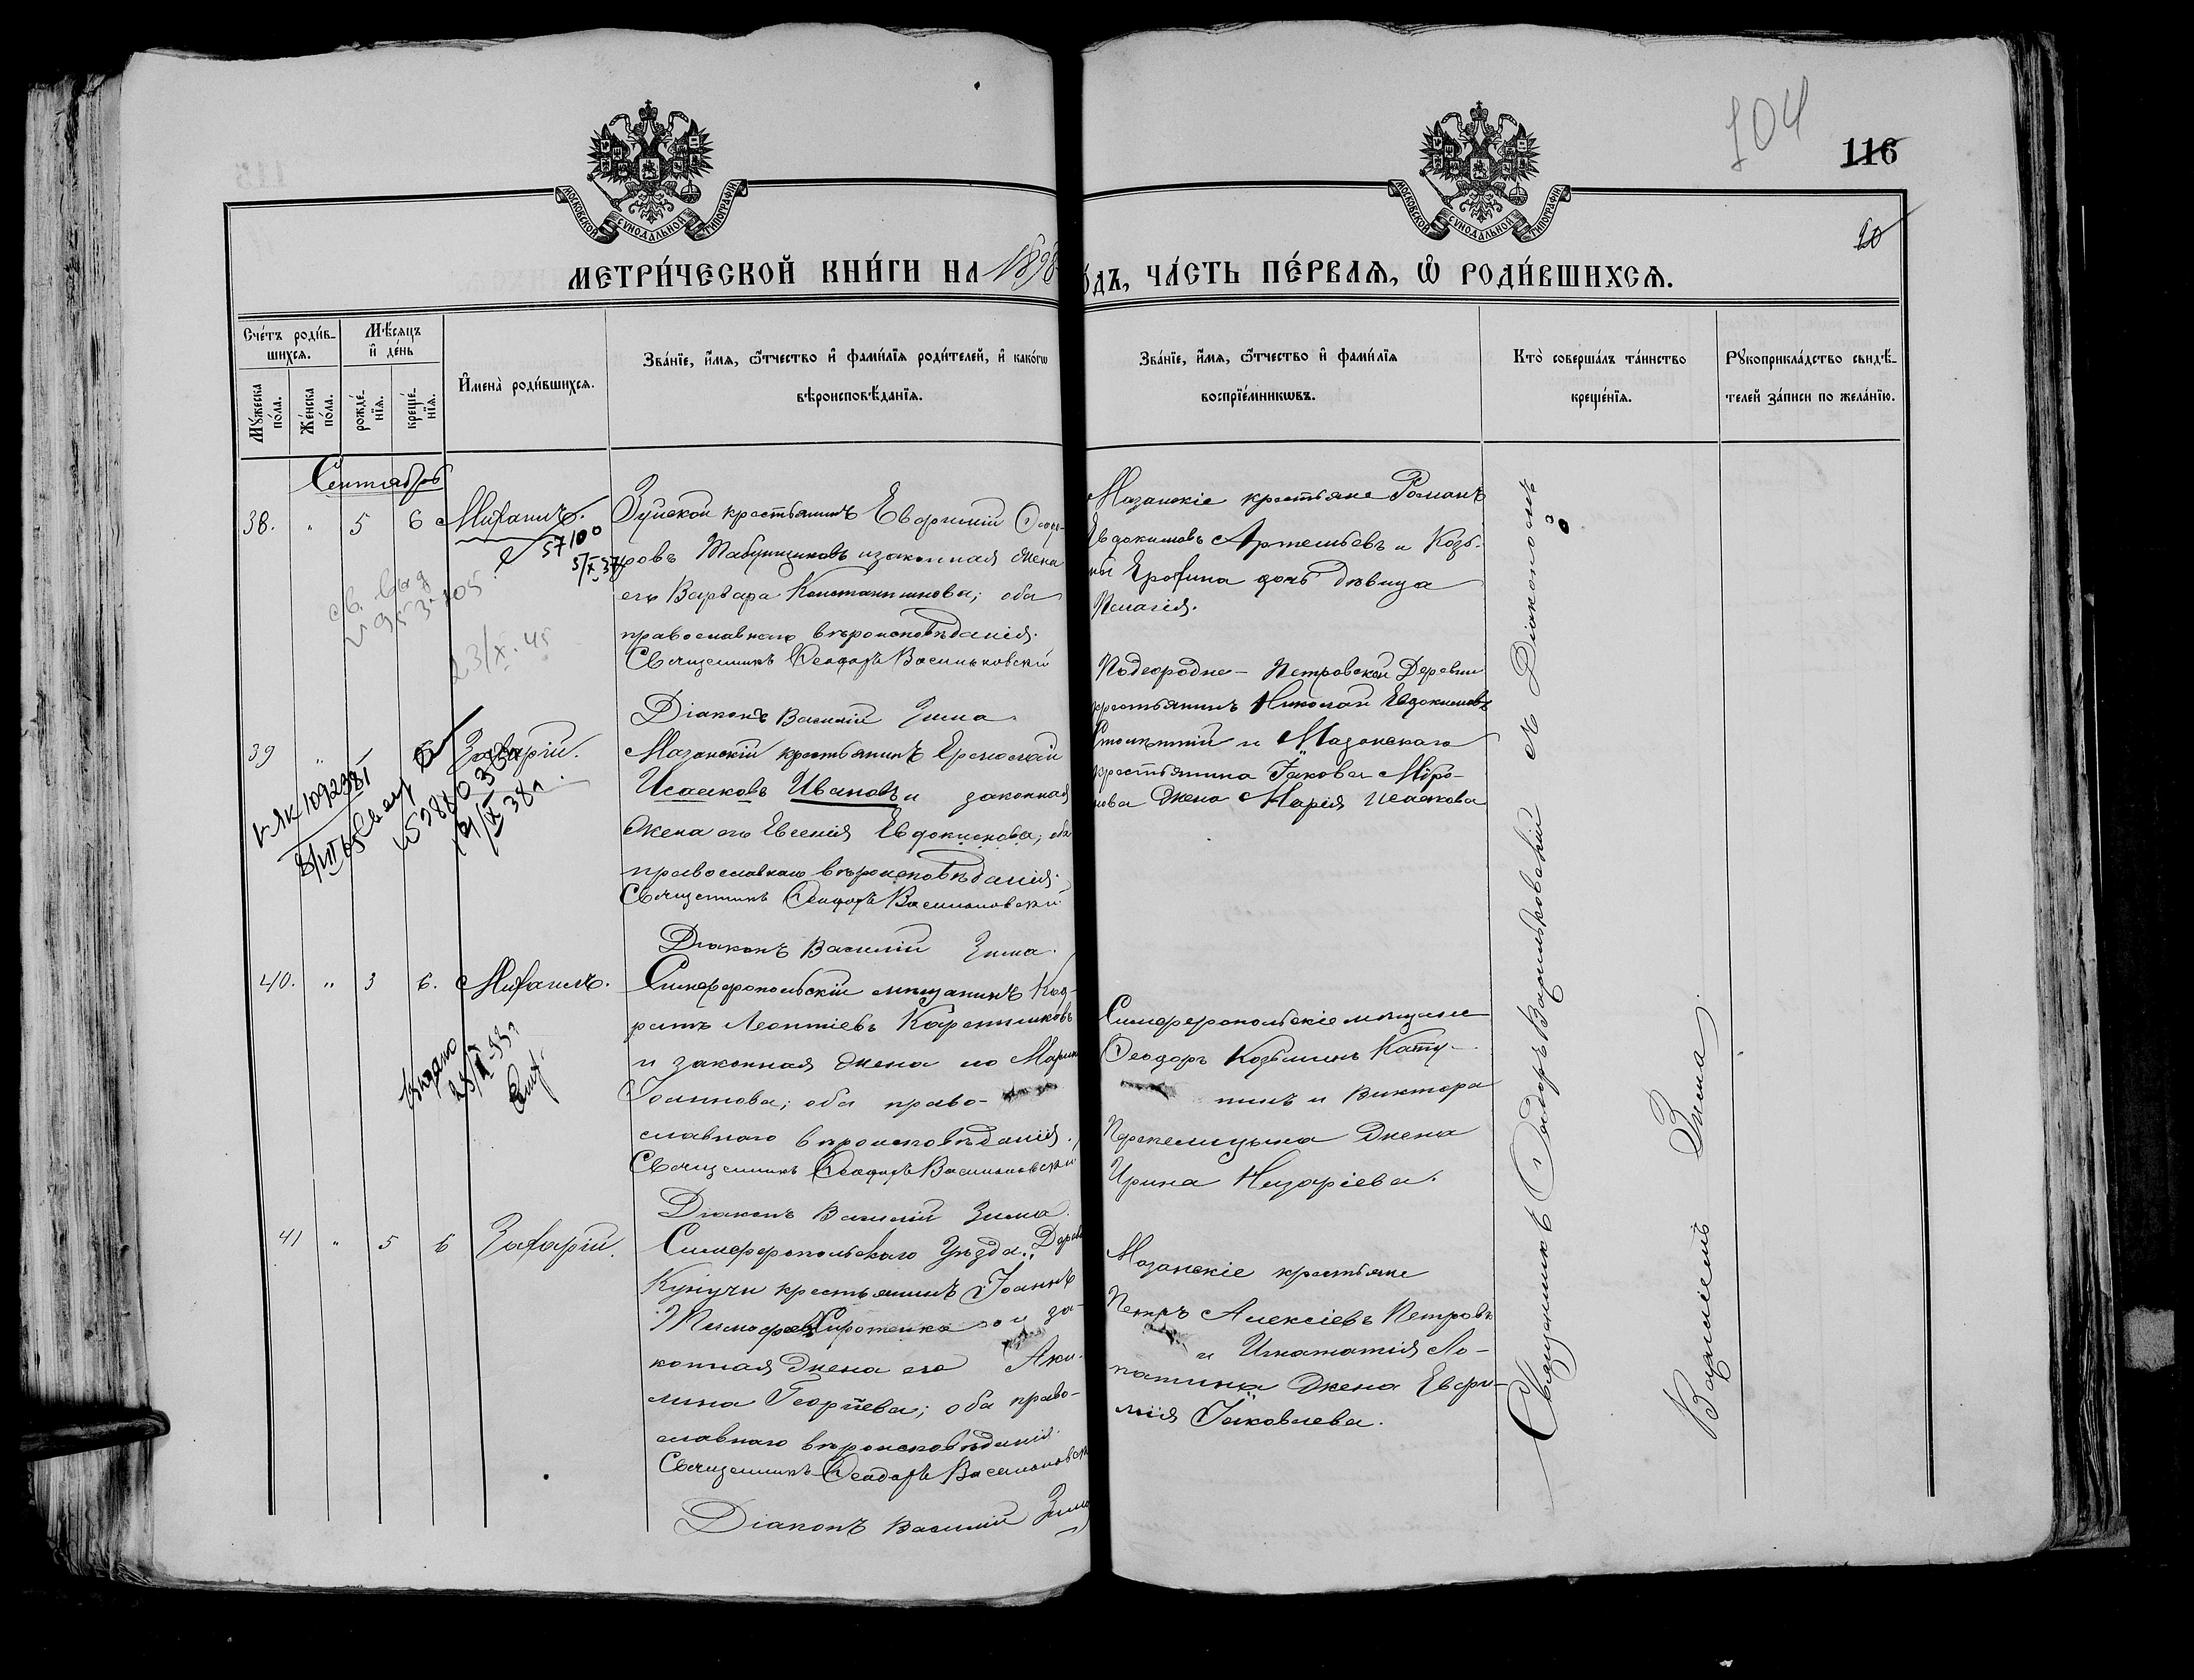 104
116
10
МОСКОВСКОЙ СУНОДАЛЬНОЙ ТИПОГРАФІИ
МОСКОВСКОЙ СУНОДАЛЬНОЙ ТИПОГРАФІИ
МЕТРИ́ЧЕСКОЙ КНИ́ГИ НА 1898
О́ДЪ, ЧА́СТЬ ПЕ́РВАѦ, Ѡ҆ РОДИ́ВШИХСѦ.
Сче́тъ роди́в-
шихсѧ.
Мꙋ́жеска по́ла.
Же́нска по́ла.
Мѣ́сѧцъ
и҆ де́нь
рожде́-нїѧ.
креще́-нїѧ.
И҆мена̀ роди́вшихсѧ.
Зва́нїе, и҆́мѧ, ѻ҆́тчество и҆ фами́лїѧ роди́телей, и҆ како́гѡ
вѣроисповѣ́данїѧ.
Зва́нїе, и҆́мѧ, ѻ҆́тчество и҆ фами́лїѧ
воспрїе́мникѡвъ.
Кто̀ соверша́лъ та́инство
креще́нїѧ.
Рꙋкоприкла́дство свидѣ́-
телей за́писи по жела́нїю.
Сентябрь
38. " 5 6 Михаилъ.
Зуйской крестьянинъ Евфимій Ѳеодо-
ровъ Табунщиковъ и законная жена
его Варвара Константинова; оба
православнаго вѣроисповѣданія.
Священникъ Ѳеодоръ Васильковскій
Діаконъ Василій Зима.
Мазанскіе крестьяне Романъ
Евдокимовъ Артемьевъ и Козь-
мы Ерохина дочь дѣвица
Пелагія.
57100
5/X 37
23/X. 45
39 " Захарій.
Мазанскій крестьянинъ Ермолай
Исааковъ Ивановъ и законная
жена его Евгенія Евдокимова; оба
православнаго вѣроисповѣданія.
Священникъ Ѳеодоръ Васильковскій
Діаконъ Василій Зима.
Подгородне-Петровской деревни
крестьянинъ Николай Евдокимовъ
и Мазанскаго
крестьянина Іакова Миро-
нова жена Марія Исаакова
40. " 3 6. Михаилъ.
Симферопольскій мѣщанинъ Код-
ратъ Леонтіевъ Карепниковъ
и законная жена его Марія
Іоаннова; оба право-
славнаго вѣроисповѣданія.
Священникъ Ѳеодоръ Васильковскій
Діаконъ Василій Зима.
Симферопольскіе мѣщане
Ѳеодоръ Козьминъ Кату-
нинъ и Виктора
жена
Ирина Назаріева.
41 " 5 6 Захарій.
Симферопольскаго Уѣзда, Дерев
крестьянинъ Іоаннъ
Тимофеевъ Сиротенко и за-
конная жена его Аки-
лина Георгіева; оба право-
славнаго вѣроисповѣданія.
Священникъ Ѳеодоръ Васильковск
Діаконъ Василій Зима
Мазанскіе крестьяне
Петръ Алексіевъ Петровъ
и Игнатія Ло-
патина жена Евфи-
мія Іаковлева.
Священникъ Ѳеодоръ Васильковскій съ Діакономъ
Василіемъ Зима.